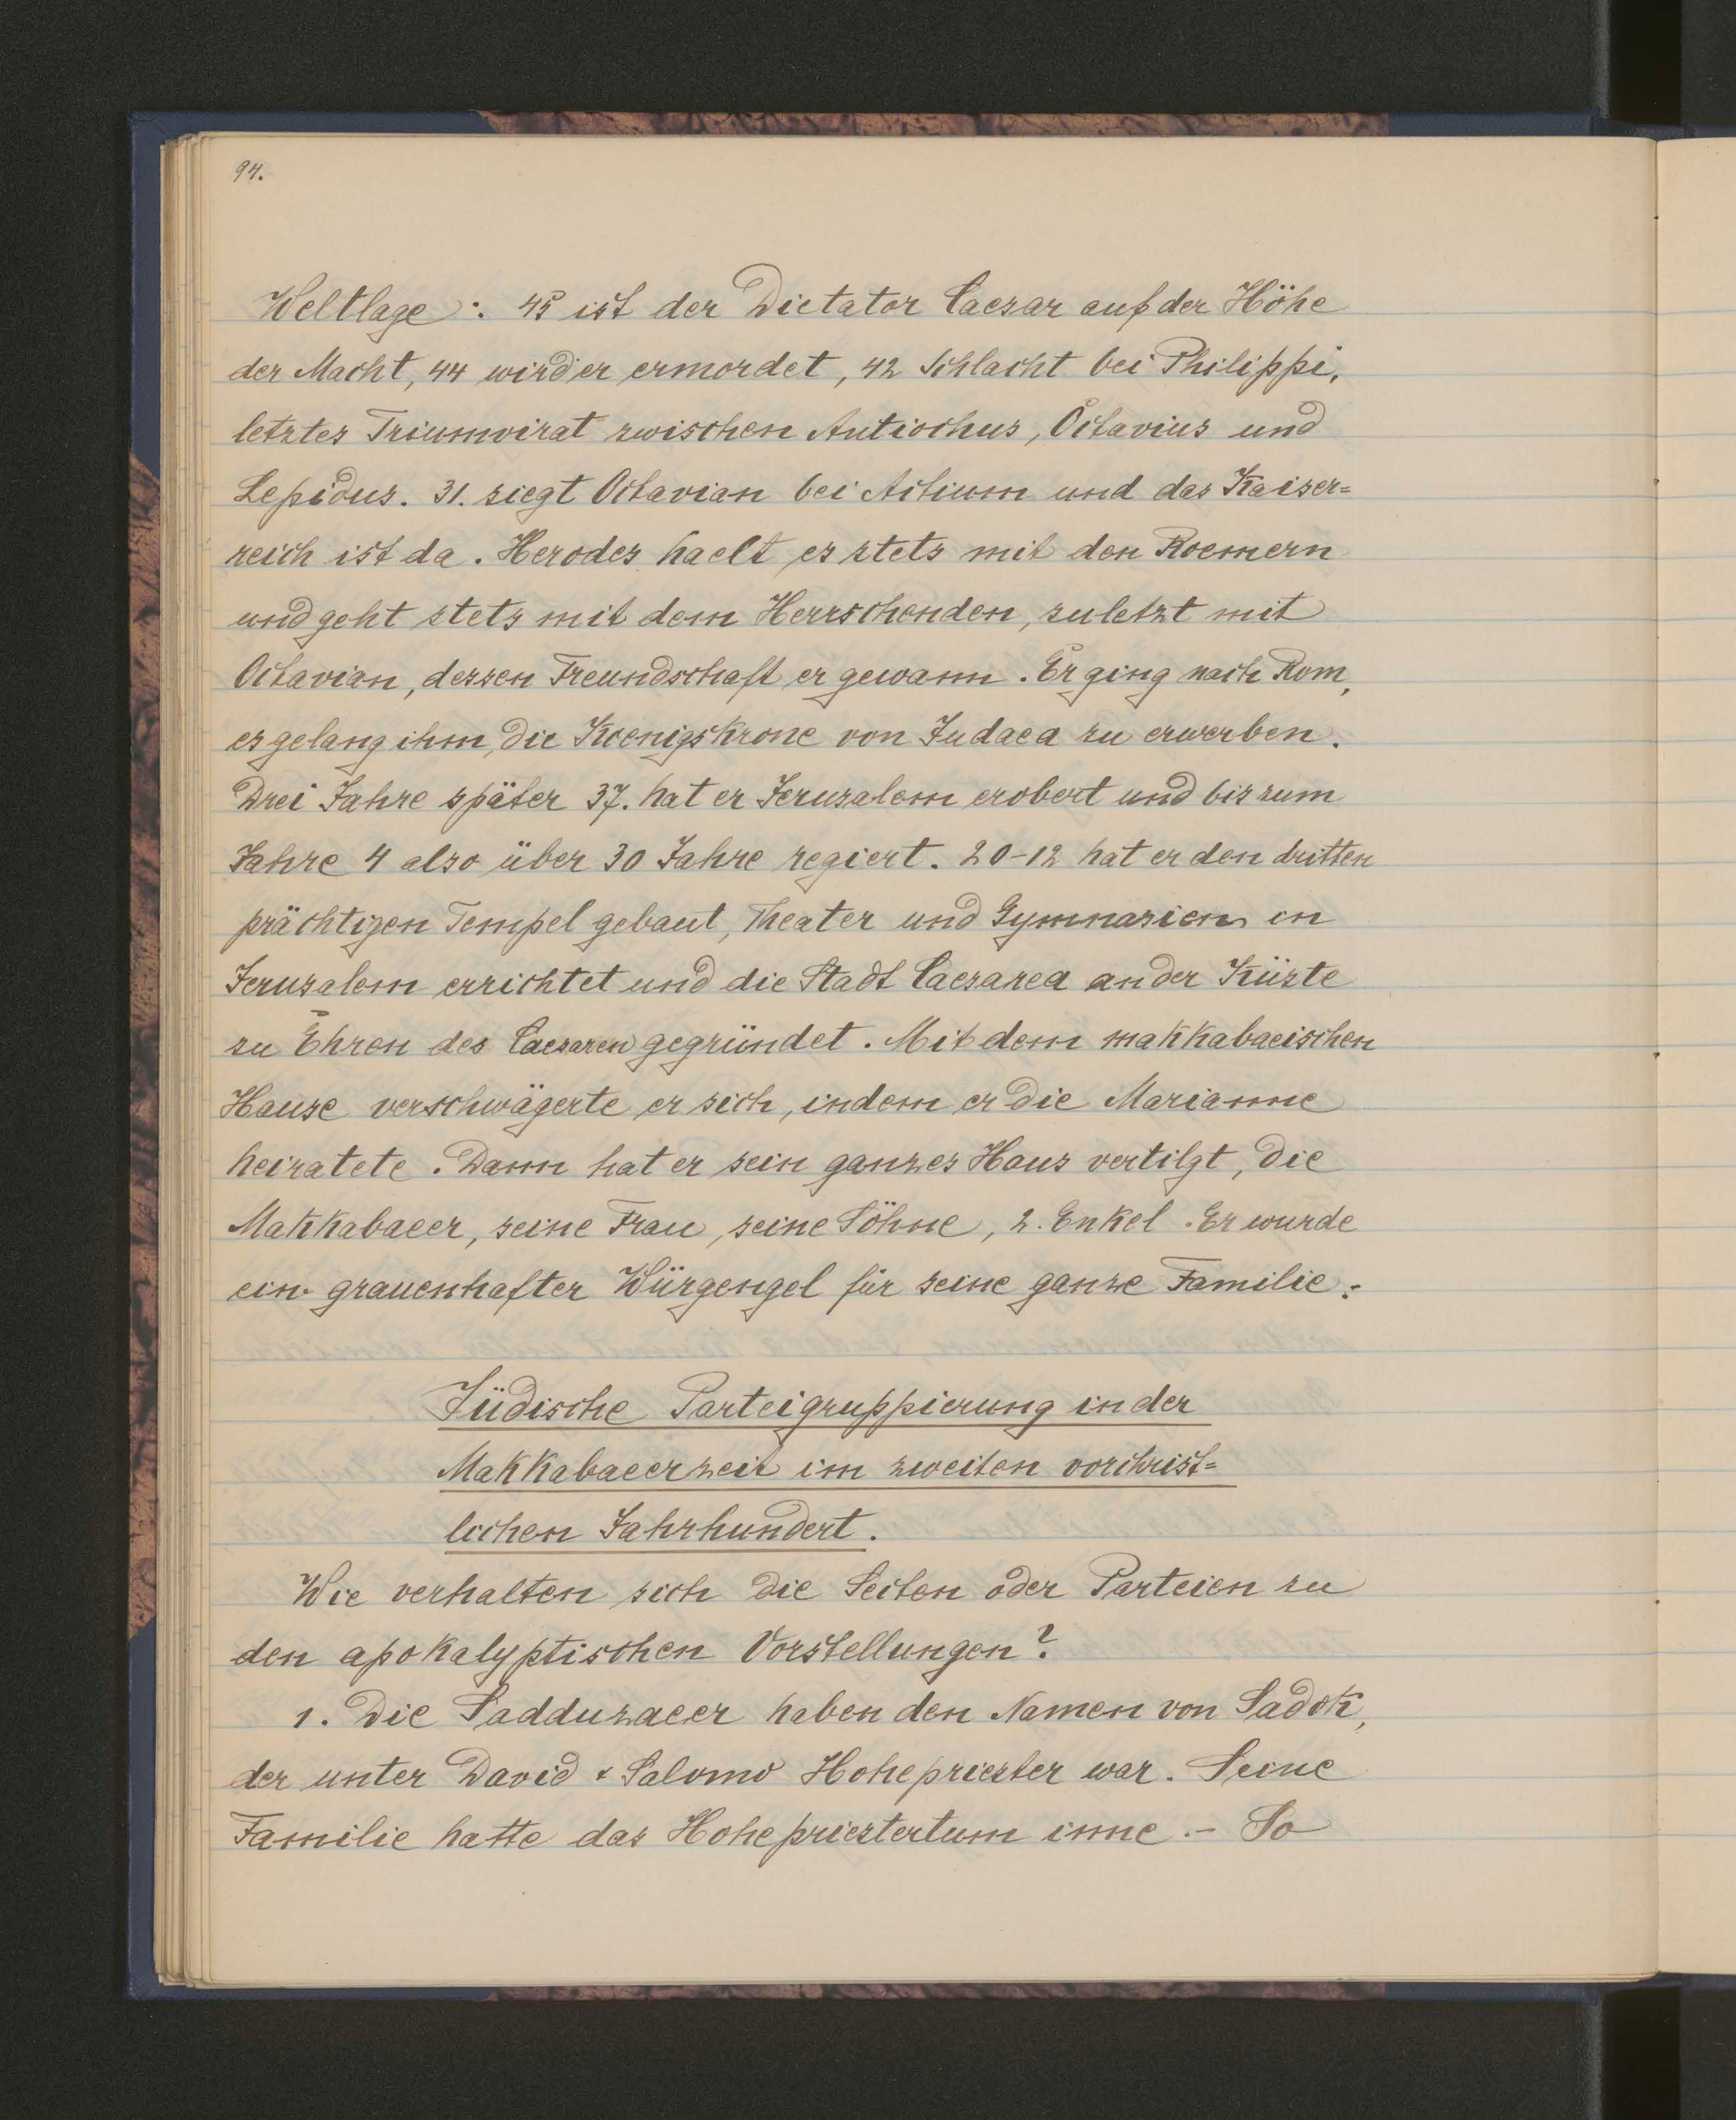 94.
Weltlage: 45 ist der Dictator Caesar auf der Höhe
der Macht, 44 wird er ermordet, 42 Schlacht bei Philippi,
letztes Triumvirat zwischen Antiochus, Octavius und
Lepidus. 31. siegt Octavian bei Actium und das Kaiser=
reich ist da. Herodes haelt es stets mit den Roemern
und geht stets mit dem Herrschenden, zuletzt mit
Octavian, dessen Freundschaft er gewann. Er ging nach Rom,
es gelang ihm, die Koenigskrone von Judaea zu erwerben.
Drei Jahre später 37. hat er Jerusalem erobert und bis zum
Jahre 4 also über 30 Jahre regiert. 20-12 hat er den dritten
prächtigen Tempel gebaut, Theater und Gymnasien in
Jerusalem errichtet und die Stadt Caesarea an der Küste
zu Ehren des Caesaren gegründet. Mit dem makkabaeischen
Hause verschwägerte er sich, indem er die Marianne
heiratete. Dann hat er sein ganzes Haus vertilgt, die
Makkabaeer, seine Frau, seine Söhne, 2. Enkel. Er wurde
ein grauenhafter Würgengel für seine ganze Familie.
Jüdische Parteigruppierung in der
Makkabaeerzeit im zweiten vorchrist=
lichen Jahrhundert.
Wie verhalten sich die Secten oder Parteien zu
den apokalyptischen Vorstellungen?
1. Die Sadduzaeer haben den Namen von Sadok,
der unter David & Salomo Hohepriester war. Seine
Familie hatte das Hohepriestertum inne. - So